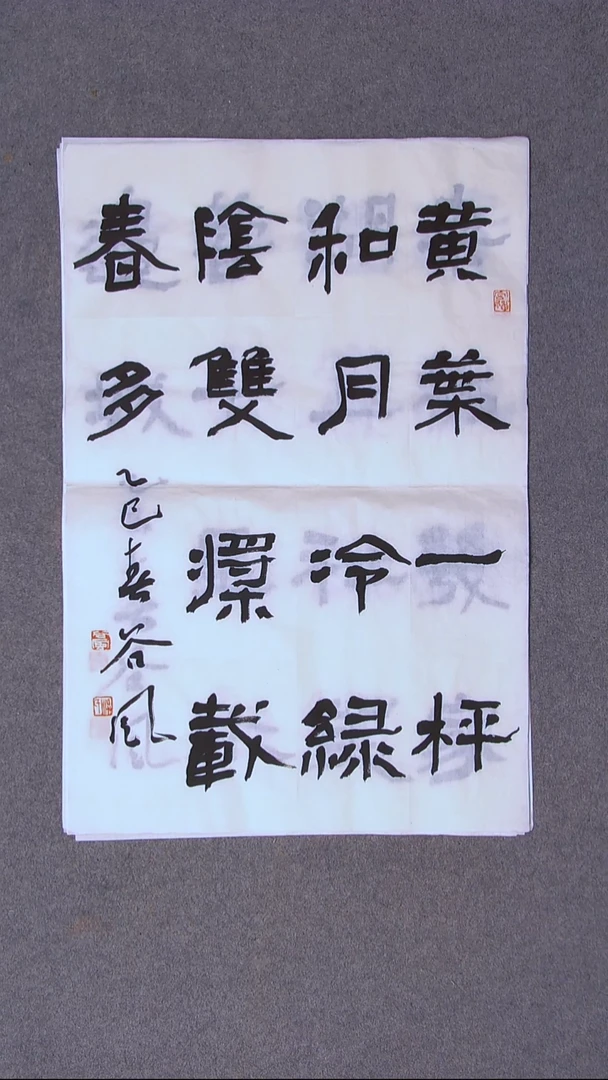 黄葉一枰
和月冷綠
陰雙槳載
春多
乙巳春谷風